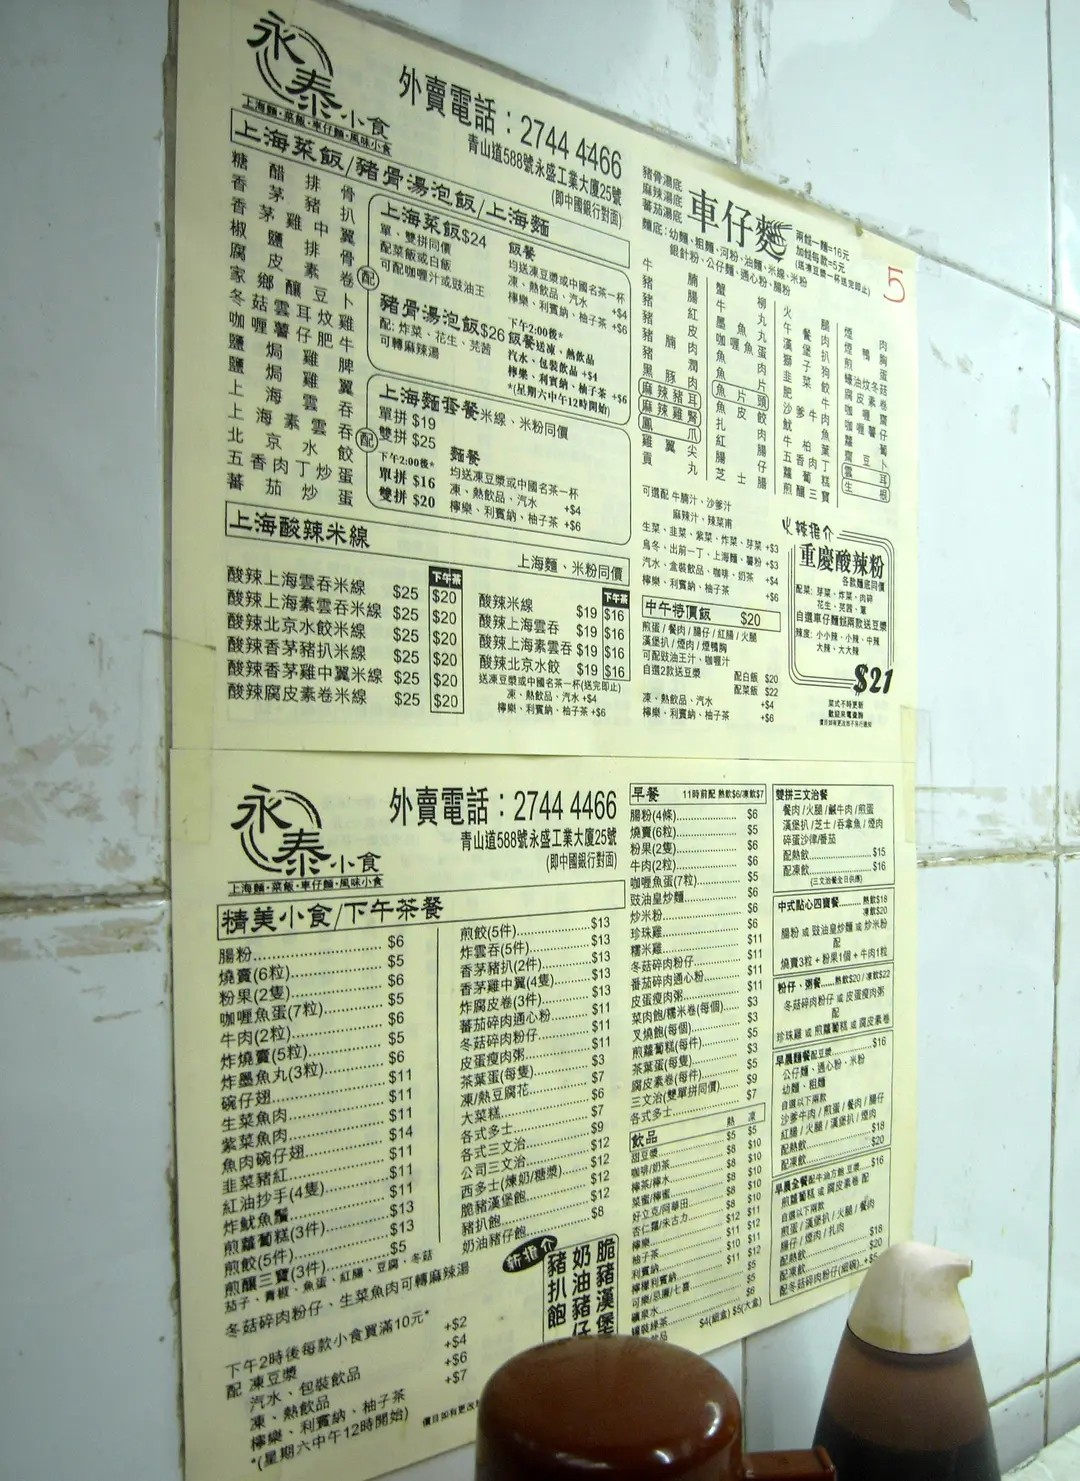 永泰小食
上海麵·菜飯·車仔麵·風味小食
外賣電話：2744 4466
青山道588號永盛工業大廈25號
(即中國銀行對面)
上海菜飯/豬骨湯泡飯/上海麵
糖醋排骨
香茅豬扒
香茅雞中翼
椒鹽排骨
腐皮素卷
家鄉釀豆卜
冬菇雲耳炆雞
咖喱薯仔肥牛
鹽焗雞脾
鹽焗雞翼
上海雲吞
上海素雲吞
北京水餃
五香肉丁炒蛋
蕃茄炒蛋
配
上海菜飯$24
單、雙拼同價
配菜飯或白飯
可配咖喱汁或豉油王
豬骨湯泡飯$26
配: 炸菜、花生、芫茜
可轉麻辣湯
飯餐
均送凍豆漿或中國名茶一杯
凍、熱飲品、汽水 +$4
檸樂、利賓納、柚子茶 +$6
下午2:00後*
飯餐送凍、熱飲品
汽水、包裝飲品 +$4
檸樂、利賓納、柚子茶 +$6
*(星期六中午12時開始)
配
上海麵套餐 米線、米粉同價
單拼 $19
雙拼 $25
下午2:00後*
單拼 $16
雙拼 $20
麵餐
均送凍豆漿或中國名茶一杯
凍、熱飲品、汽水 +$4
檸樂、利賓納、柚子茶 +$6
上海酸辣米線
上海麵、米粉同價
下午茶
酸辣上海雲吞米線 $25 $20
酸辣上海素雲吞米線 $25 $20
酸辣北京水餃米線 $25 $20
酸辣香茅豬扒米線 $25 $20
酸辣香茅雞中翼米線 $25 $20
酸辣腐皮素卷米線 $25 $20
下午茶
酸辣米線 $19 $16
酸辣上海雲吞 $19 $16
酸辣上海素雲吞 $19 $16
酸辣北京水餃 $19 $16
送凍豆漿或中國名茶一杯(送完即止)
凍、熱飲品、汽水 +$4
檸樂、利賓納、柚子茶 +$6
豬骨湯底
麻辣湯底
蕃茄湯底
車仔麵
兩餸一麵=16元
加餸每款=5元
(送凍豆漿一杯送完即止)
麵底：幼麵、粗麵、河粉、油麵、米線、米粉
銀針粉、公仔麵、通心粉、腸粉
5
牛腩
豬腸
豬紅
豬皮
豬腩肉
豬潤
黑豚肉
麻辣豬耳
麻辣雞腎
鳳爪
雞翼尖
貢丸
蟹柳
牛丸
墨魚丸
咖喱魚蛋
魚肉
魚片
魚片頭
魚皮餃
扎肉
紅腸
腸仔
芝士腸
火腿
午餐肉
漢堡扒
獅子狗
韭菜餃
肥牛
沙爹牛肉
魷魚
牛柏葉
五香肉丁
蘿蔔糕
煎釀三寶
煙肉
煙鴨胸
煎蛋
蠔油炆冬菇
腐皮素卷
咖喱齋
咖喱薯仔
蘿蔔
齋
豆卜
雲耳
生根
可選配 牛腩汁、沙爹汁
麻辣汁、辣菜甫
生菜、韭菜、紫菜、炸菜、芽菜 +$3
烏冬、出前一丁、上海麵、薯粉 +$3
汽水、盒裝飲品、咖啡、奶茶 +$4
檸樂、利賓納、柚子茶 +$6
中午特價飯 $20
煎蛋/餐肉/腸仔/紅腸/火腿
漢堡扒/煙肉/煙鴨胸
可配豉油王汁、咖喱汁
自選2款送豆漿
配白飯 $20
配菜飯 $22
凍、熱飲品、汽水 +$4
檸樂、利賓納、柚子茶 +$6
火辣推介
重慶酸辣粉
各款麵底同價
配菜: 芽菜、炸菜、肉碎
花生、芫茜、蔥
自選車仔麵餸兩款送豆漿
辣度: 小小辣、小辣、中辣
大辣、大大辣
$21
菜式不時更新
歡迎來電查詢
價目如有更改恕不另行通知
永泰小食
上海麵·菜飯·車仔麵·風味小食
外賣電話：2744 4466
青山道588號永盛工業大廈25號
(即中國銀行對面)
精美小食/下午茶餐
腸粉 $6
燒賣(6粒) $5
粉果(2隻) $6
咖喱魚蛋(7粒) $5
牛肉(2粒) $6
炸燒賣(5粒) $5
炸墨魚丸(3粒) $6
碗仔翅 $11
生菜魚肉 $11
紫菜魚肉 $11
魚肉碗仔翅 $14
韭菜豬紅 $11
紅油抄手(4隻) $11
炸魷魚鬚 $11
煎蘿蔔糕(3件) $13
煎餃(5件) $13
煎釀三寶(3件) $5
茄子、青椒、魚蛋、紅腸、豆腐、冬菇
冬菇碎肉粉仔、生菜魚肉可轉麻辣湯
煎餃(5件) $13
炸雲吞(5件) $13
香茅豬扒(2件) $13
香茅雞中翼(4隻) $13
炸腐皮卷(3件) $13
蕃茄碎肉通心粉 $11
冬菇碎肉粉仔 $11
皮蛋瘦肉粥 $11
茶葉蛋(每隻) $3
凍/熱豆腐花 $7
大菜糕 $6
各式多士 $7
各式三文治 $9
公司三文治 $12
西多士(煉奶/糖漿) $12
脆豬漢堡飽 $12
豬扒飽 $12
奶油豬仔飽 $8
下午2時後每款小食買滿10元*
配 凍豆漿 +$2
汽水、包裝飲品 +$4
凍、熱飲品 +$6
檸樂、利賓納、柚子茶 +$7
*(星期六中午12時開始)
價目如有更改
新推介
脆豬漢堡
奶油豬仔
豬扒飽
早餐 11時前配 熱飲$6/凍飲$7
腸粉(4條) $6
燒賣(6粒) $5
粉果(2隻) $6
牛肉(2粒) $6
咖喱魚蛋(7粒) $5
豉油皇炒麵 $6
炒米粉 $6
珍珠雞 $6
糯米雞 $6
冬菇碎肉粉仔 $11
蕃茄碎肉通心粉 $11
皮蛋瘦肉粥 $11
菜肉飽/糯米卷(每個) $3
叉燒飽(每個) $3
煎蘿蔔糕(每件) $5
茶葉蛋(每隻) $3
腐皮素卷(每件) $5
三文治(雙單拼同價) $9
各式多士 $7
飲品 熱 凍
甜豆漿 $5 $5
咖啡/奶茶 $8 $10
檸茶/檸水 $8 $10
菜蜜/檸蜜 $8 $10
好立克/阿華田 $8 $10
杏仁霜/朱古力 $8 $10
檸樂 $12 $11
柚子茶 $11 $12
利賓納 $10 $11
檸檬利賓納 $11 $12
可樂/忌廉/七喜 $5
礦泉水 $6
罐裝綠茶 $5
$4(細盒) $5(大盒)
雙拼三文治餐
餐肉/火腿/鹹牛肉/煎蛋
漢堡扒/芝士/吞拿魚/煙肉
碎蛋沙律/番茄
配熱飲 $15
配凍飲 $16
(三文治餐全日供應)
中式點心四寶餐 熱飲$18
凍飲$20
腸粉 或 豉油皇炒麵 或 炒米粉
配
燒賣3粒+粉果1個+牛肉1粒
粉仔、粥餐 熱飲$20/凍飲$22
冬菇碎肉粉仔 或 皮蛋瘦肉粥
配
珍珠雞 或 煎蘿蔔糕 或 腐皮素卷
早晨麵餐 配豆漿 $16
公仔麵、通心粉、米粉
幼麵、粗麵
自選以下兩款
沙爹牛肉/煎蛋/餐肉/腸仔
紅腸/火腿/漢堡扒/煙肉
配熱飲 $18
配凍飲 $20
早晨全餐 配牛油方飽 豆漿 $16
煎蘿蔔糕 或 腐皮素卷 配
自選以下兩款
煎蛋/漢堡扒/火腿/餐肉
腸仔/煙肉/扎肉
配熱飲 $18
配凍飲 $20
配冬菇碎肉粉仔(細碗) +$5